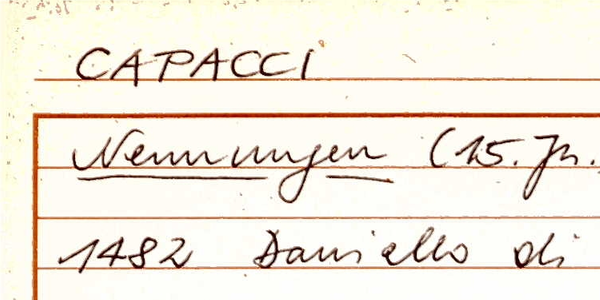 CAPACCI
Nennungen (15. Jh.
1482 Daniello di